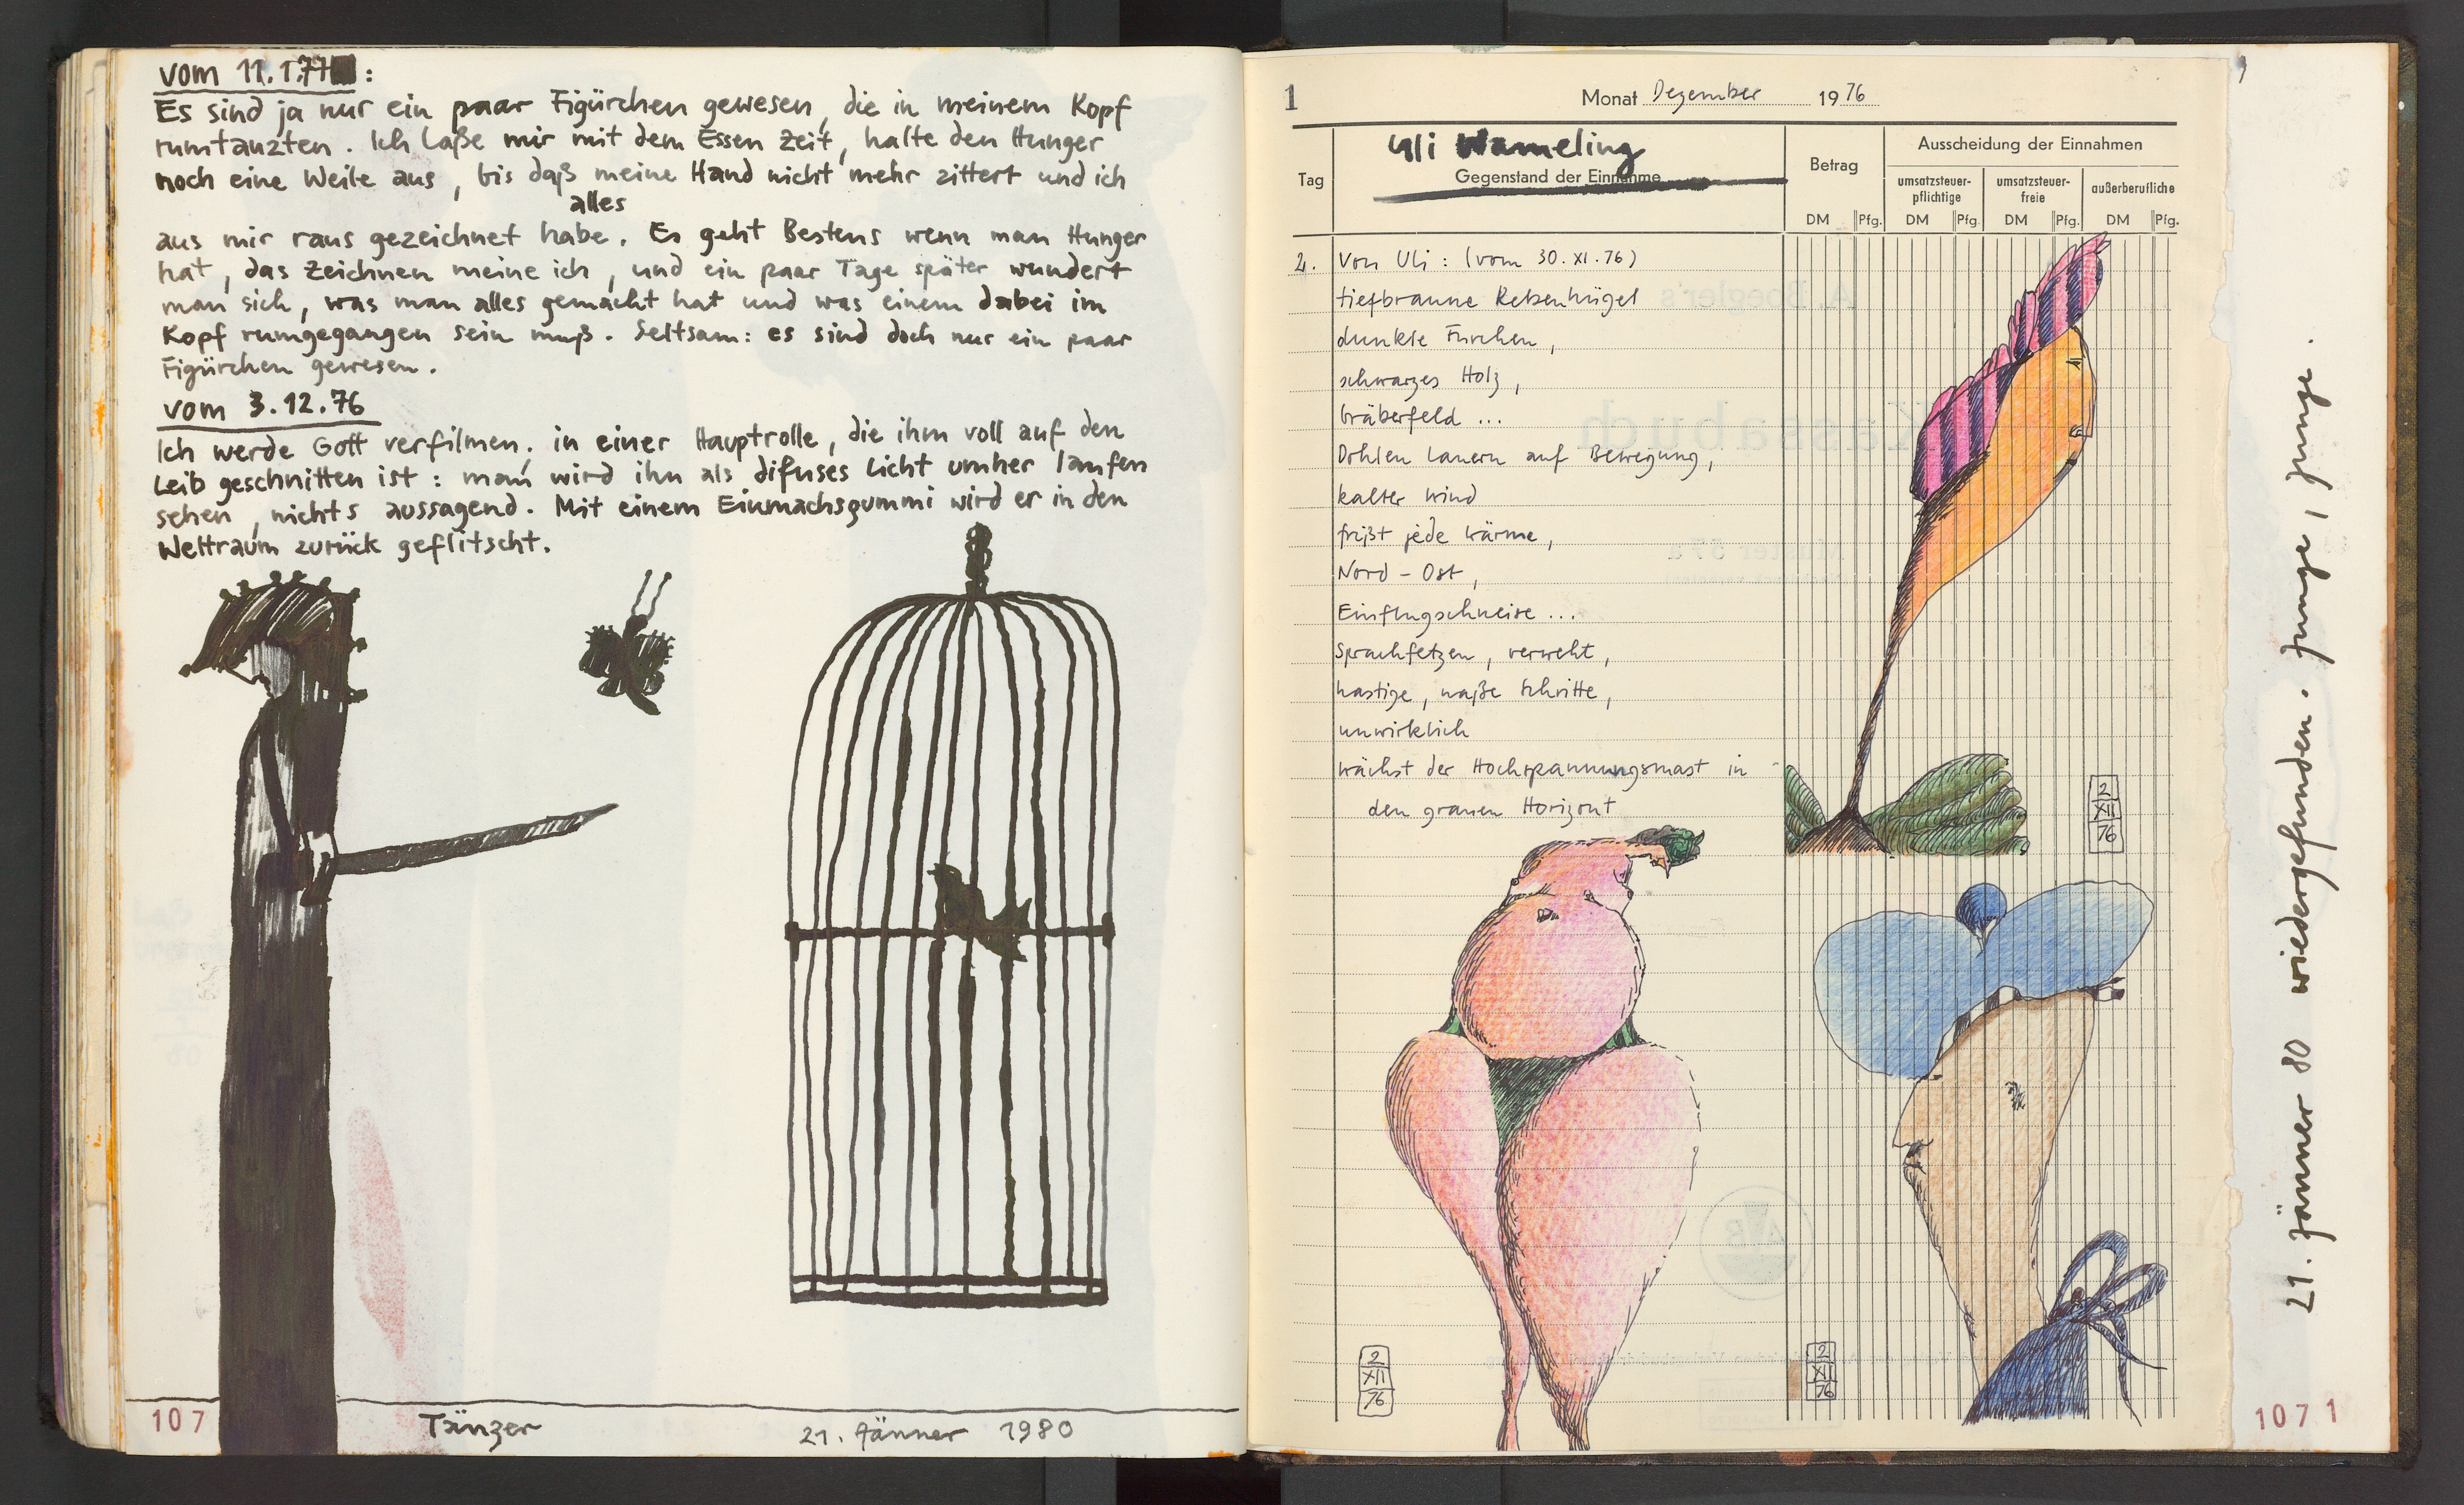 vom 11.1.77:
Es sind ja nur ein paar Figürchen gewesen, die in meinem Kopf
rumtanzten. Ich laße mir mit dem Essen Zeit, halte den Hunger
noch eine Weile aus, bis daß meine Hand nicht mehr zittert und ich
alles
aus mir raus gezeichnet habe. Es geht Bestens wenn man Hunger
hat, das Zeichnen meine ich, und ein paar Tage später wundert
man sich, was man alles gemacht hat und was einem dabei im
Kopf rumgegangen sein muß. Seltsam: es sind doch nur ein paar
Figürchen gewesen.
vom 3.12.76
Ich werde Gott verfilmen, in einer Hauptrolle, die ihm voll auf den
Leib geschnitten ist: man wird ihn als difuses Licht umher laufen
sehen, nichts aussagend. Mit einem Einmachsgummi wird er in den
Weltraum zurück geflitscht.
107
Tänzer
21. Jänner 1980
1
Monat Dezember 1976
Uli Wameling
Tag
Gegenstand der Einnahme
Betrag
Ausscheidung der Einnahmen
umsatzsteuer-
pflichtige
umsatzsteuer-
freie
außerberufliche
DM Pfg. DM Pfg. DM Pfg. DM Pfg.
2. Von Uli: (vom 30.XI.76)
tiefbraune Rebenhügel
dunkle Furchen,
schwarzes Holz,
Gräberfeld ...
Dohlen lauern auf Bewegung,
kalter Wind
frißt jede Wärme,
Nord-Ost,
Einflugschneise ...
Sprachfetzen, verweht,
hastige, naße Schritte,
unwirklich
wächst der Hochspannungsmast in
den grauen Horizont
2
XII
76
2
XII
76
2
XII
76
21. Jänner 80 wiedergefunden. Junge, Junge.
1071